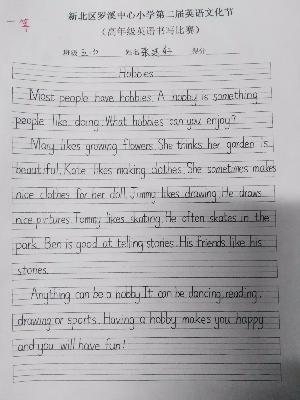 一等
新北区罗溪中心小学第二届英语文化节
（高年级英语书写比赛）
班级 五 姓名 张 得分
Hobbies
Most people have hobbies. A hobby is something
people like doing. What hobbies can you enjoy?
Mary likes growing flowers. She thinks her garden is
beautiful. Kate likes making clothes. She sometimes makes
nice clothes for her doll. Jimmy likes drawing. He draws
nice pictures. Tommy likes skating. He often skates in the
park. Ben is good at telling stories. His friends like his
stories.
Anything can be a hobby. It can be dancing, reading,
drawing or sports. Having a hobby makes you happy
and you will have fun!